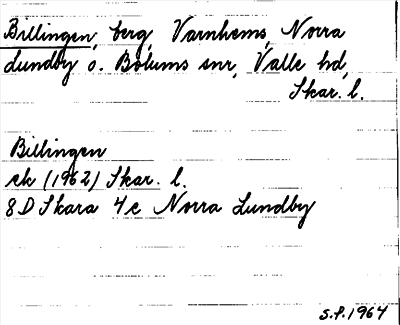 Billingen, berg, Varnhems, Norra
Lundby o. Bolums snr, Valle hd,
Skar. l.
Billingen
ek (1962) Skar. l.
8 D Skara 4 c Norra Lundby
S.P. 1964